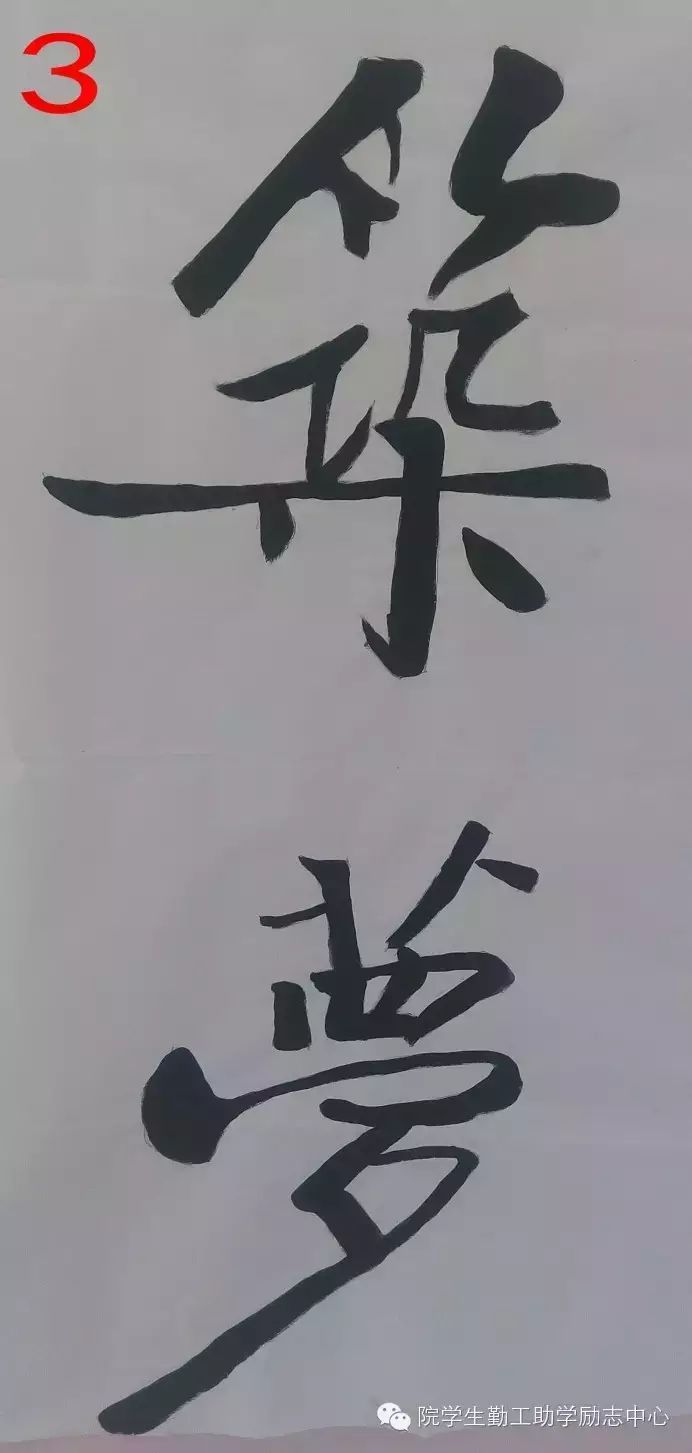 3
築
夢
院学生勤工助学励志中心